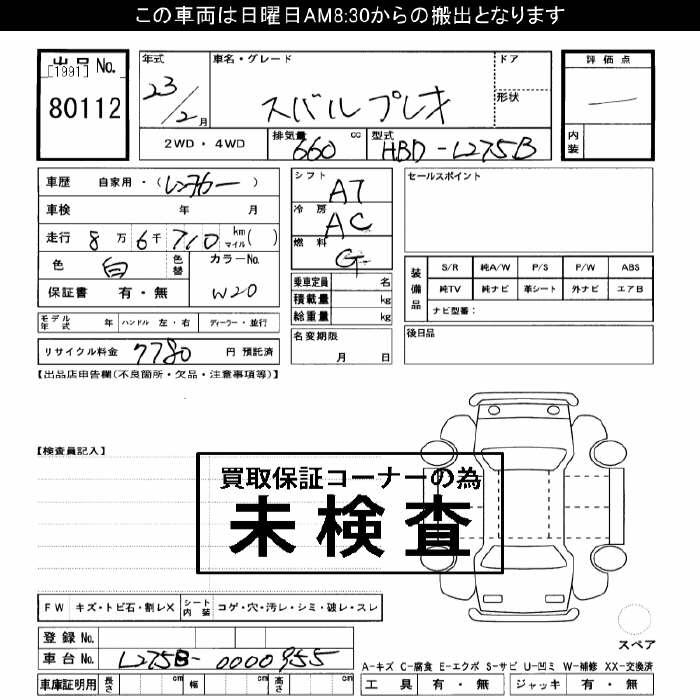 この車両は日曜日AM8:30からの搬出となります
出品 No.
[1991]
80112
年式 23/2月
車名・グレード スバル プレオ
ドア
形状
評価点
内装
2WD・4WD
排気量 660 cc
型式 HBD-L275B
車歴 自家用・(レンタカー)
車検 年 月
走行 8万 6千 710 km マイル( )
色 白 色替
カラーNo. W20
保証書 有・無
シフト AT
冷房 AC
燃料 G
乗車定員 名
積載量 kg
総重量 kg
セールスポイント
装備品
S/R 純A/W P/S P/W ABS
純TV 純ナビ 革シート 外ナビ エアB
ナビ型番:
モデル年式 年 ハンドル 左・右 ディーラー・並行
名変期限 月 日
後日品
リサイクル料金 7780 円 預託済
【出品店申告欄(不良箇所・欠品・注意事項等)】
【検査員記入】
買取保証コーナーの為
未検査
FW キズ・トビ石・割レX シート内装 コゲ・穴・汚レ・シミ・破レ・スレ
登録 No.
車台 No. L275B-0000955
スペア
A-キズ C-腐食 E-エクボ S-サビ U-凹ミ W-補修 XX-交換済
車庫証明用 長さ cm 幅 cm 高さ cm
工具 有・無 ジャッキ 有・無